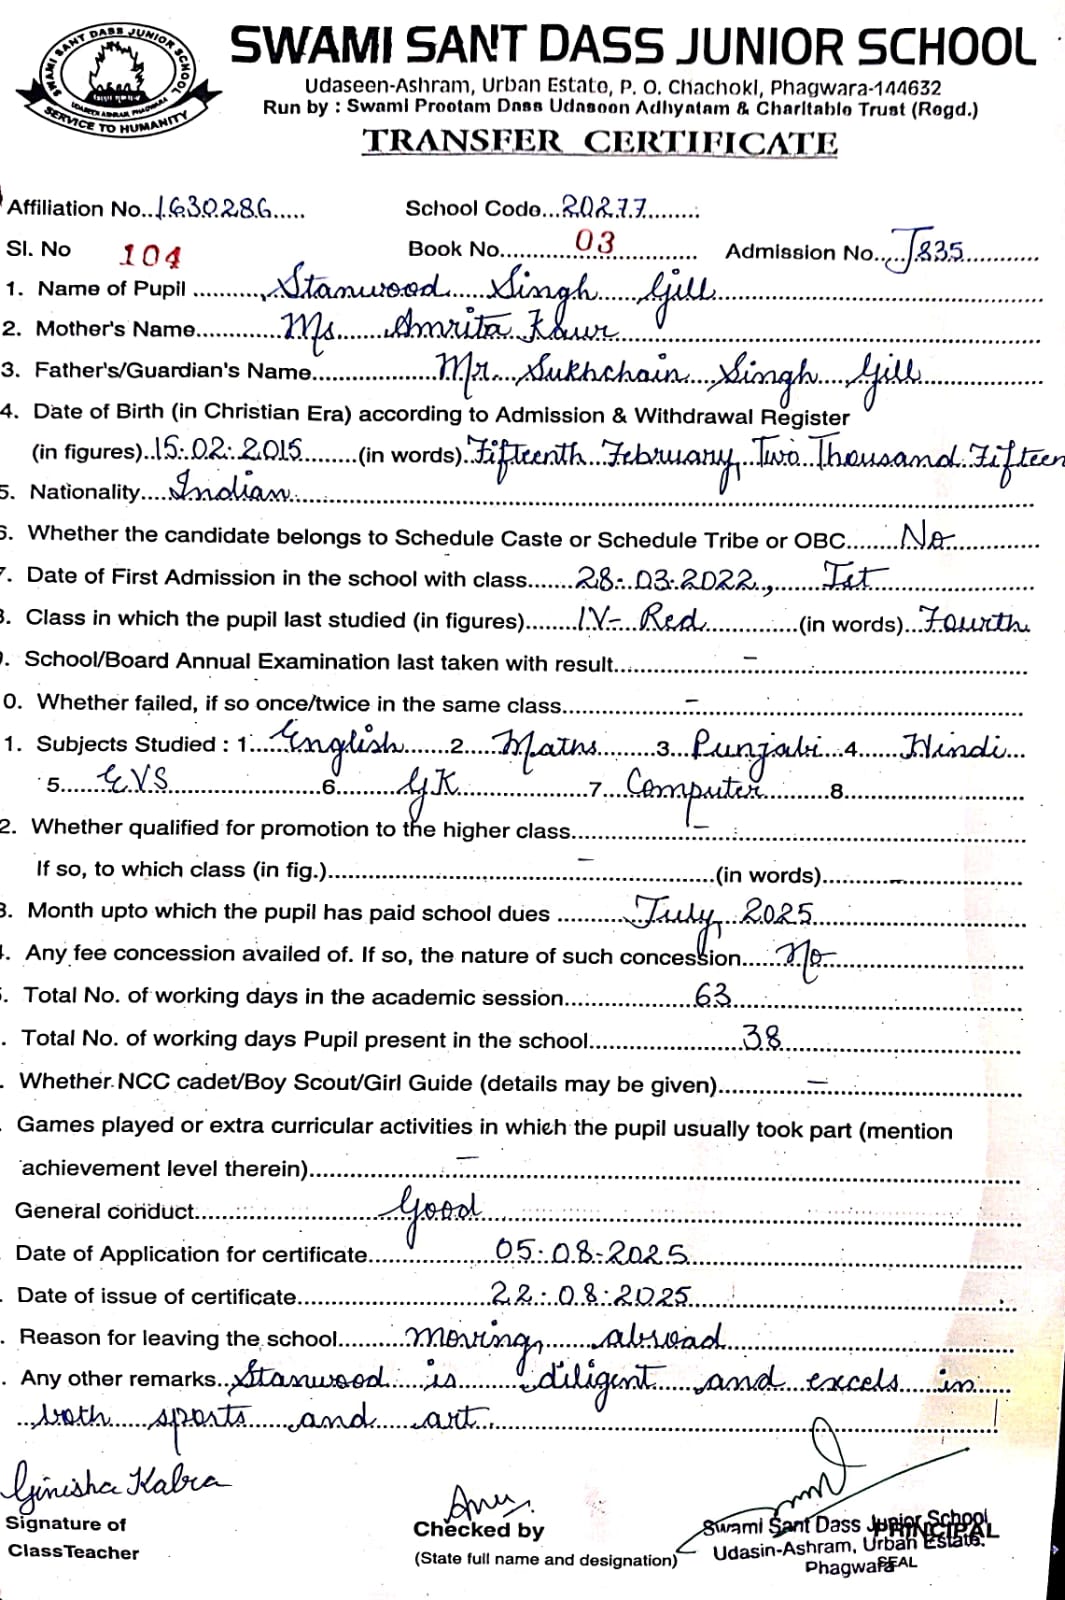 SWAMI SANT DASS JUNIOR SCHOOL
UDASEEN ASHRAM, PHAGWARA
SERVICE TO HUMANITY
SWAMI SANT DASS JUNIOR SCHOOL
Udaseen-Ashram, Urban Estate, P. O. Chachoki, Phagwara-144632
Run by : Swami Preetam Dass Udaseen Adhyatam & Charitable Trust (Regd.)
TRANSFER CERTIFICATE
Affiliation No. 1630286 School Code 20277
Sl. No 104 Book No. 03 Admission No. J835
1. Name of Pupil Stanwood Singh Gill
2. Mother's Name Ms Amrita Kaur
3. Father's/Guardian's Name Mr. Sukhchain Singh Gill
4. Date of Birth (in Christian Era) according to Admission & Withdrawal Register
(in figures) 15.02.2015 (in words) Fifteenth February, Two Thousand Fifteen
5. Nationality Indian
6. Whether the candidate belongs to Schedule Caste or Schedule Tribe or OBC No
7. Date of First Admission in the school with class 28.03.2022, Ist
8. Class in which the pupil last studied (in figures) IV- Red (in words) Fourth
9. School/Board Annual Examination last taken with result –
0. Whether failed, if so once/twice in the same class –
1. Subjects Studied : 1. English 2. Maths 3. Punjabi 4. Hindi
5. EVS 6. GK 7. Computer 8.
2. Whether qualified for promotion to the higher class –
If so, to which class (in fig.) – (in words) –
3. Month upto which the pupil has paid school dues July, 2025
. Any fee concession availed of. If so, the nature of such concession No
. Total No. of working days in the academic session 63
. Total No. of working days Pupil present in the school 38
. Whether NCC cadet/Boy Scout/Girl Guide (details may be given) –
. Games played or extra curricular activities in which the pupil usually took part (mention
achievement level therein) –
General conduct Good
Date of Application for certificate 05.08.2025
. Date of issue of certificate 22.08.2025
. Reason for leaving the school moving abroad
. Any other remarks Stanwood is diligent and excels in
both sports and art.
Ginisha Kabra
Signature of
Class Teacher
Checked by
(State full name and designation)
PRINCIPAL
SEAL
Swami Sant Dass Junior School
Udasin-Ashram, Urban Estate.
Phagwara